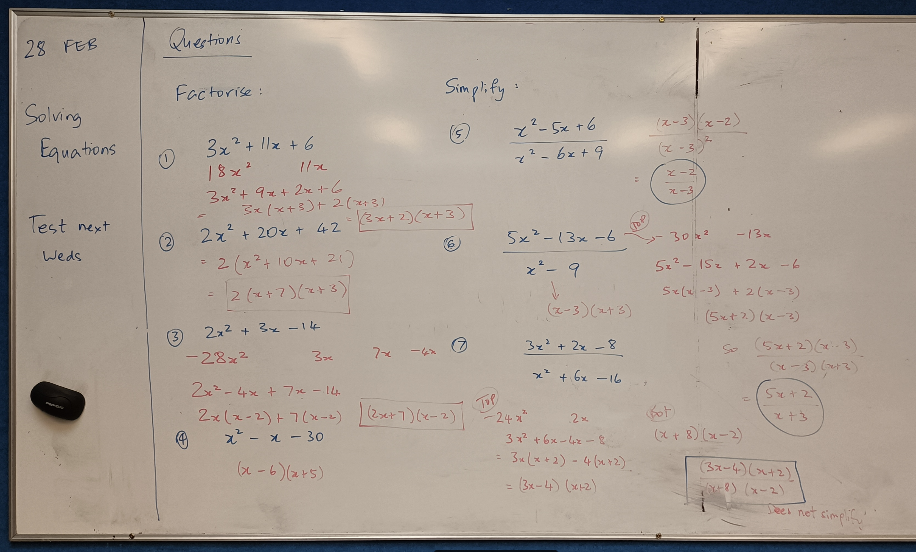 28 FEB
Solving
Equations
Test next
Weds
Questions
Factorise:
① 3x² + 11x + 6
18x² 11x
3x² + 9x + 2x + 6
= 3x(x+3) + 2(x+3)
= (3x+2)(x+3)
② 2x² + 20x + 42
= 2(x² + 10x + 21)
= 2(x+7)(x+3)
③ 2x² + 3x - 14
-28x² 3x 7x -4x
2x² - 4x + 7x - 14
2x(x-2) + 7(x-2) (2x+7)(x-2)
④ x² - x - 30
(x-6)(x+5)
Simplify:
⑤ x² - 5x + 6
x² - 6x + 9
(x-3)(x-2)
(x-3)²
= x-2
x-3
⑥ 5x² - 13x - 6
x² - 9
(x-3)(x+3)
TOP
-30x² -13x
5x² - 15x + 2x - 6
5x(x-3) + 2(x-3)
(5x+2)(x-3)
So (5x+2)(x-3)
(x-3)(x+3)
= 5x+2
x+3
⑦ 3x² + 2x - 8
x² + 6x - 16
TOP
-24x² 2x
3x² + 6x - 4x - 8
= 3x(x+2) - 4(x+2)
= (3x-4)(x+2)
BOT
(x+8)(x-2)
(3x-4)(x+2)
(x+8)(x-2)
Does not simplify